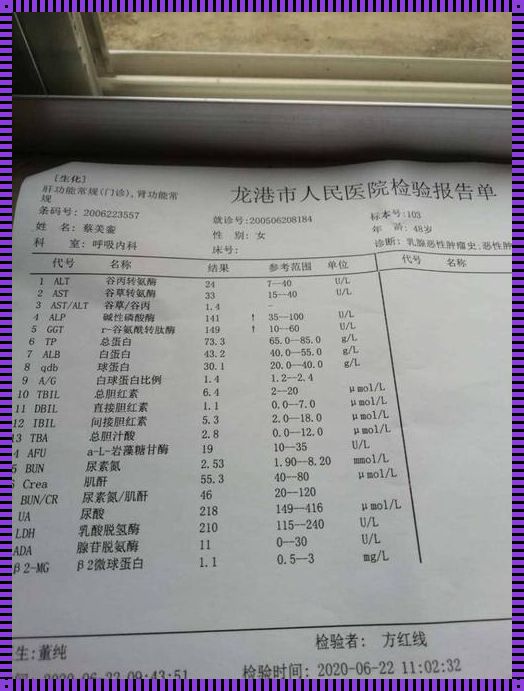 [生化]
肝功能常规(门诊),肾功能常
规
龙港市人民医院检验报告单
条码号: 2006223557 就诊号:200506208184 标本号:103
姓 名: 蔡美銮 性 别: 女 年 龄: 48岁
科 室: 呼吸内科 床号: 诊断: 乳腺恶性肿瘤史;恶性肿
代号 名称 结果 参考范围 单位 代号 名称
1 ALT 谷丙转氨酶 24 7--40 U/L
2 AST 谷草转氨酶 33 15--40 U/L
3 AST/ALT 谷草/谷丙 1.4 -
4 ALP 碱性磷酸酶 141 ↑ 35--100 U/L
5 GGT r-谷氨酰转肽酶 149 ↑ 10--60 U/L
6 TP 总蛋白 73.3 65.0--85.0 g/L
7 ALB 白蛋白 43.2 40.0--55.0 g/L
8 qdb 球蛋白 30.1 20.0--40.0 g/L
9 A/G 白球蛋白比例 1.4 1.2--2.4
10 TBIL 总胆红素 6.4 2--20 μmol/L
11 DBIL 直接胆红素 1.1 0.0--7.0 μmol/L
12 IBIL 间接胆红素 5.3 2.0--18.0 μmol/L
13 TBA 总胆汁酸 2.8 0.0--12.0 μmol/L
4 AFU a-L-岩藻糖甘酶 19 10--35 U/L
5 BUN 尿素氮 2.53 1.90--8.20 mmol/L
Crea 肌酐 55.3 40--80 μmol/L
BUN/CR 尿素氮/肌酐 46 20--120
UA 尿酸 218 149--416 μmol/L
LDH 乳酸脱氢酶 210 115--240 U/L
ADA 腺苷脱氨酶 11 0--30 U/L
β2-MG β2微球蛋白 1.1 0.5--3 mg/L
生:董纯 检验者: 方红线
2020-06-22 09:43:51 检验时间: 2020-06-22 11:02:32